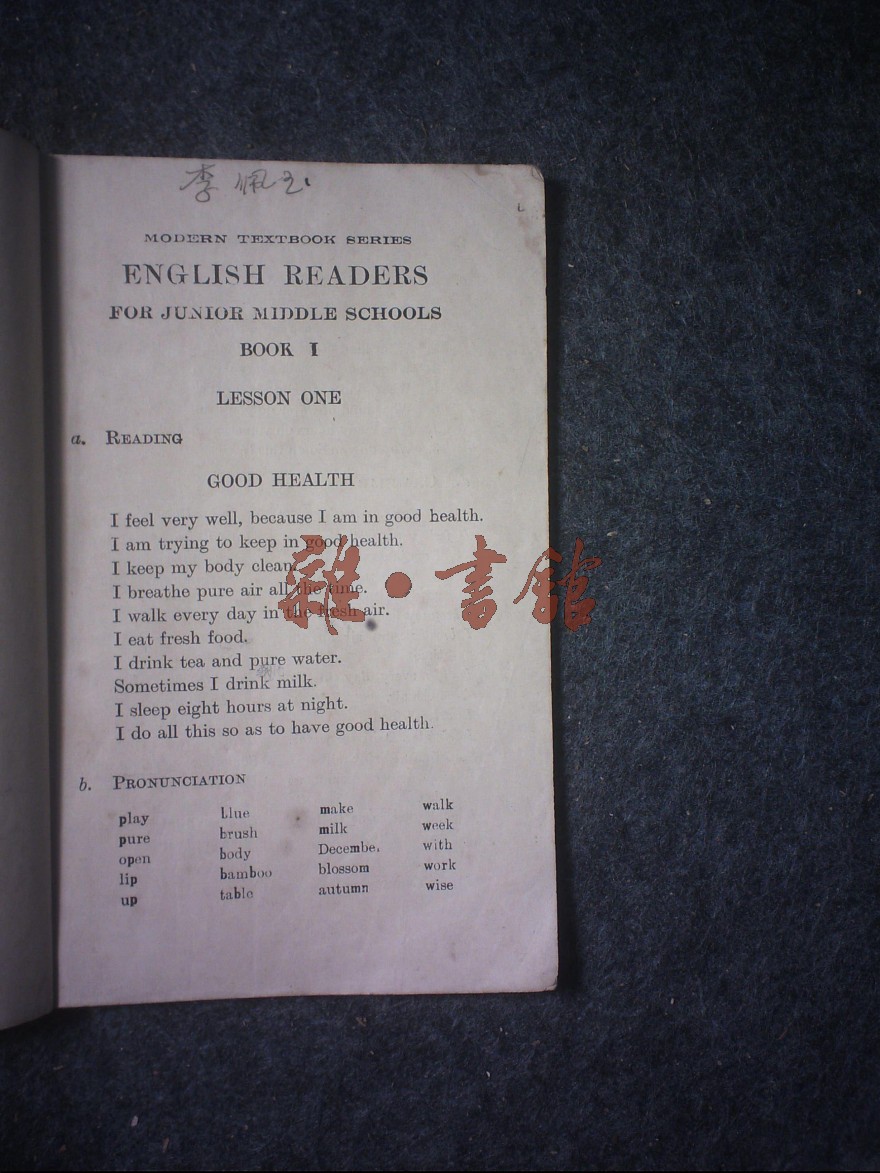 李佩玉
MODERN TEXTBOOK SERIES
ENGLISH READERS
FOR JUNIOR MIDDLE SCHOOLS
BOOK I
LESSON ONE
a. READING
GOOD HEALTH
I feel very well, because I am in good health.
I am trying to keep in good health.
I keep my body clean.
I breathe pure air all the time.
I walk every day in the fresh air.
I eat fresh food.
I drink tea and pure water.
Sometimes I drink milk.
I sleep eight hours at night.
I do all this so as to have good health.
雜·書館
b. PRONUNCIATION
play blue make walk
pure brush milk week
open body December with
lip bamboo blossom work
up table autumn wise